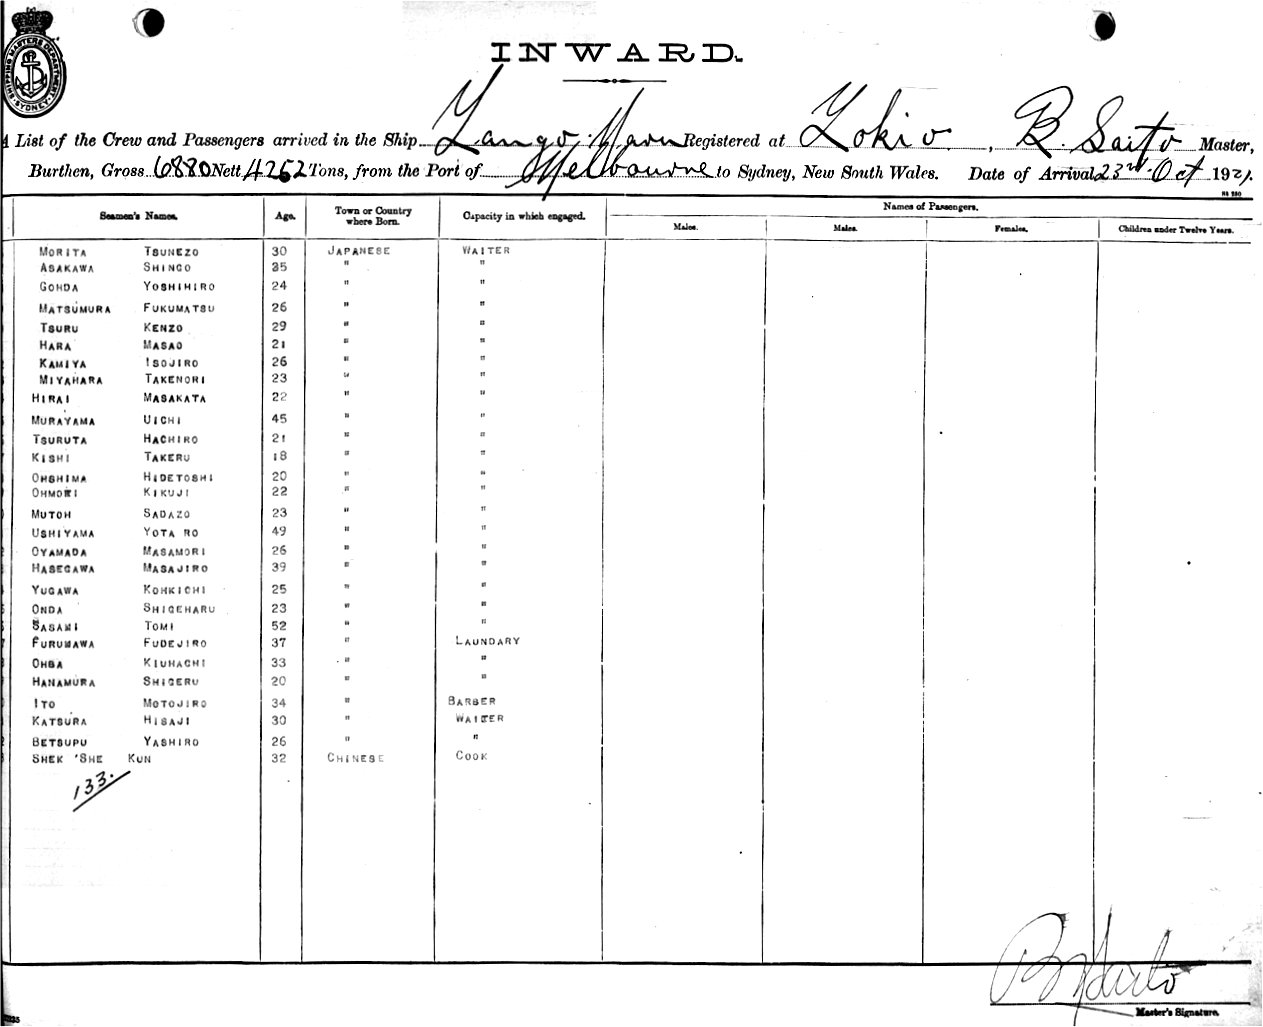 SHIPPING MASTERS DEPARTMENT SYDNEY
INWARD.
A List of the Crew and Passengers arrived in the Ship Tango Maru Registered at Tokio, B. Saito Master,
Burthen, Gross 6880 Nett 4262 Tons, from the Port of Melbourne to Sydney, New South Wales. Date of Arrival 23rd Oct 1921.
Seamen's Names. Age. Town or Country where Born. Capacity in which engaged. Names of Passengers.
Males. Males. Females. Children under Twelve Years.
MORITA TSUNEZO 30 JAPANESE WAITER
ASAKAWA SHINGO 35 " "
GOHDA YOSHIHIRO 24 " "
MATSUMURA FUKUMATSU 26 " "
TSURU KENZO 29 " "
HARA MASAO 21 " "
KAMIYA ISOJIRO 26 " "
MIYAHARA TAKENORI 23 " "
HIRAI MASAKATA 22 " "
MURAYAMA UICHI 45 " "
TSURUTA HACHIRO 21 " "
KISHI TAKERU 18 " "
OHSHIMA HIDETOSHI 20 " "
OHMORI KIKUJI 22 " "
MUTOH SADAZO 23 " "
USHIYAMA YOTA RO 49 " "
OYAMADA MASAMORI 26 " "
HASEGAWA MASAJIRO 39 " "
YUGAWA KOHKICHI 25 " "
ONDA SHIGEHARU 23 " "
SASAKI TOMI 52 " "
FURUKAWA FUDEJIRO 37 " LAUNDARY
OHBA KIUHACHI 33 " "
HANAMURA SHIGERU 20 " "
ITO MOTOJIRO 34 " BARBER
KATSURA HISAJI 30 " WAITER
BETSUPU YASHIRO 26 " "
SHEK 'SHE KUN 32 CHINESE COOK
133.
B Saito
Master's Signature.